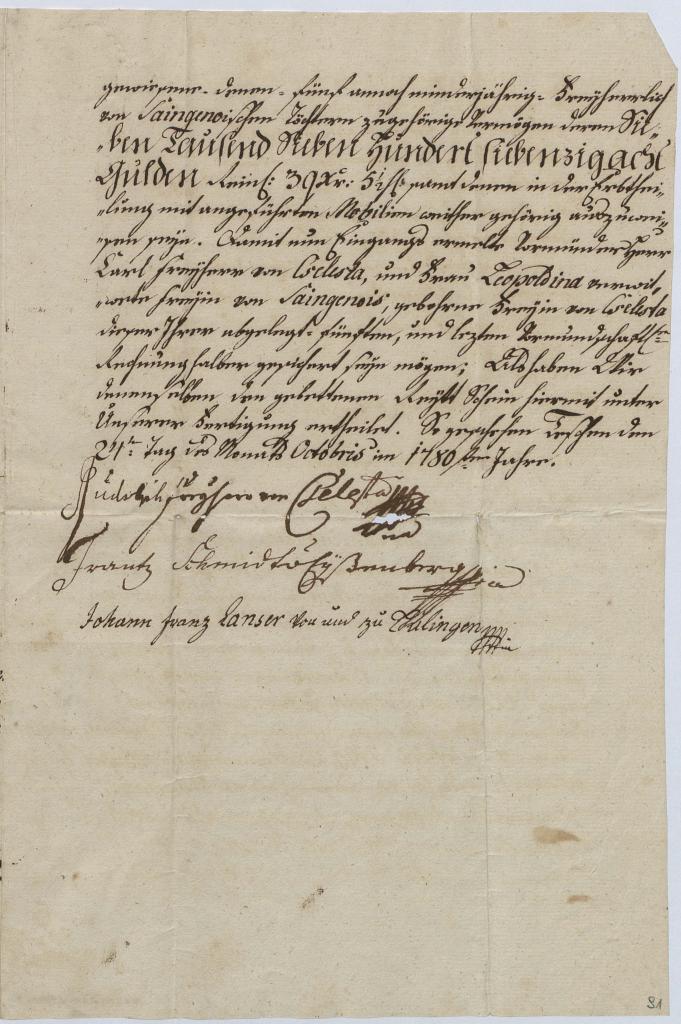 gewiesene- denen- fünf annoch minderjährig- Freyherrlich
von Saingenoischen Töchtern zugehörige Vermögen deren Sie-
ben Tausend Sieben Hundert siebenzig acht
Gulden Reinl: 39 xr: samt denen in der Erbthei-
lung mit angeführten Mobilien weither gehörig auszuwei-
sen seyn. Damit nun Eingangs ermelte Vormünder Herr
Carl Freyherr von Cselesta, und Frau Leopoldina verwit-
wete Freyin von Saingenois, gebohrne Freyin von Cselesta
dieser Ihrer abgelegt- fünften, und lezten Vormundschafts-
Rechnung halber gesichert seyn mögen; Als haben Wir
denenselben den gebettenen Schein hiermit unter
Unserer Fertigung ertheilet. So geschehen Teschen den
Tag des Monats Octobris im 1780 Jahre.
Rudolph Freyherr von Cselesta
Frantz Schmidt v Eyßenberg
Johann Franz Lanser von und zu
81